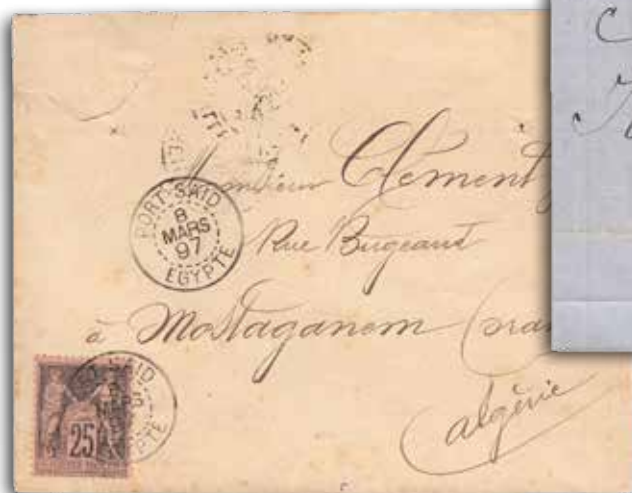 PORT-SAID
8
MARS
97
EGYPTE
Monsieur Clement
Rue Bugeaud
à Mostaganem (oran
algérie
25
SAID
MARS
EGYPTE